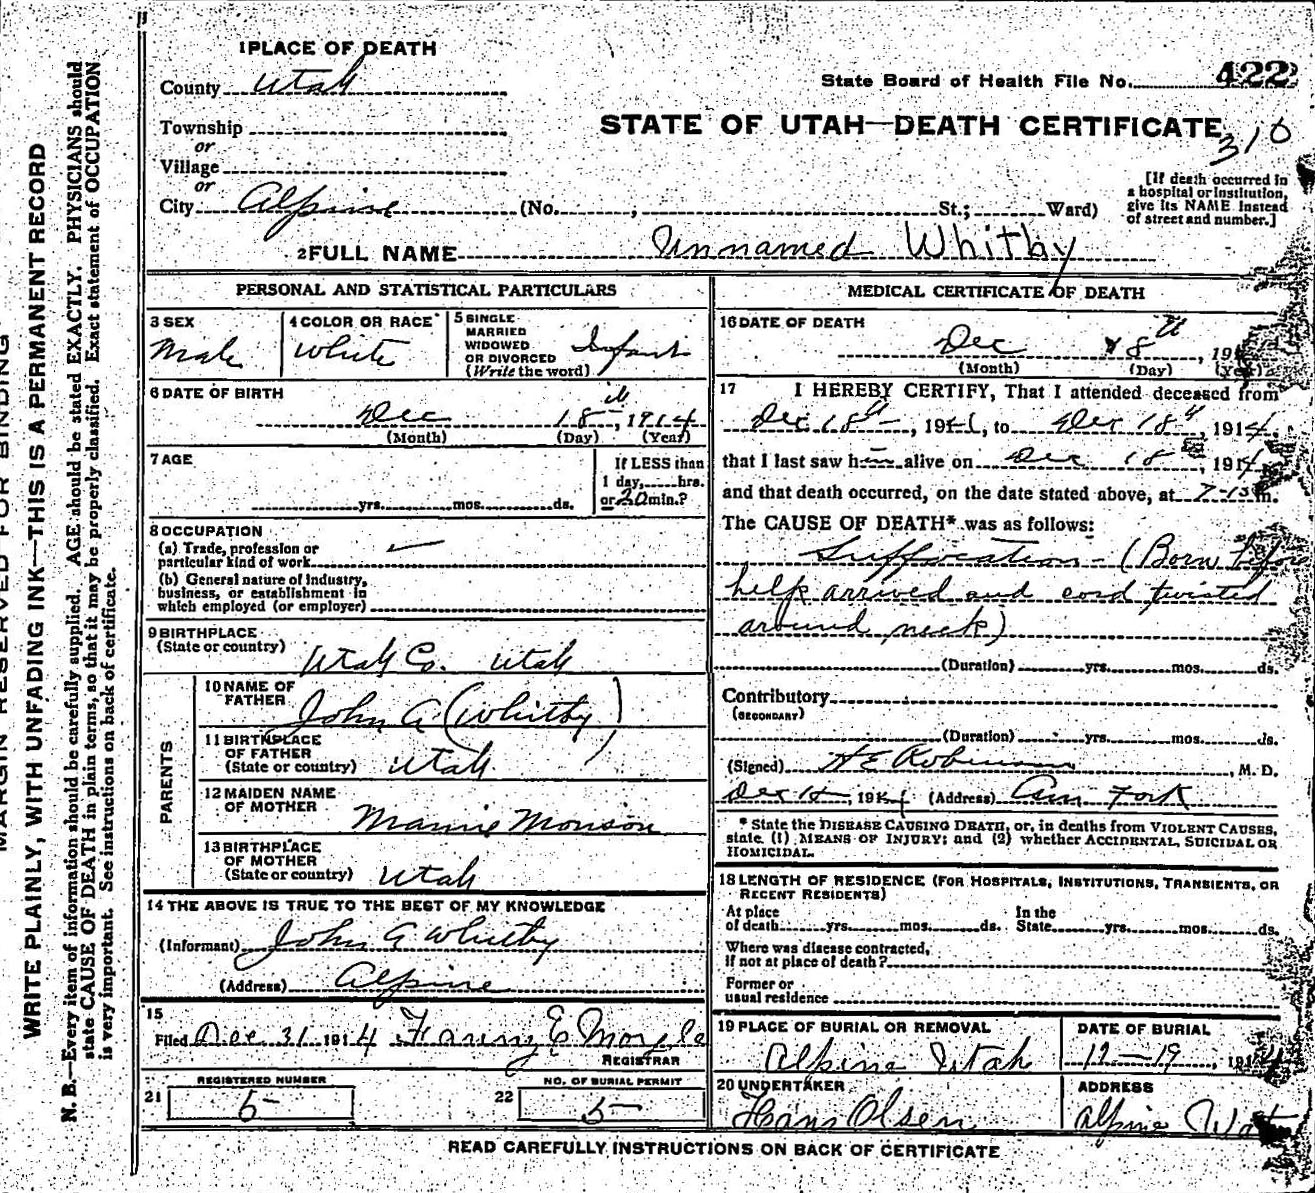 1 PLACE OF DEATH
County Utah
State Board of Health File No. 422
Township
or
STATE OF UTAH—DEATH CERTIFICATE
310
Village
or
City Alpine (No. , St.; Ward)
[If death occurred in
a hospital or institution,
give its NAME instead
of street and number.]
2 FULL NAME Unnamed Whitby
PERSONAL AND STATISTICAL PARTICULARS
3 SEX
Male
4 COLOR OR RACE
White
5 SINGLE
MARRIED
WIDOWED
OR DIVORCED
(Write the word)
Infant
6 DATE OF BIRTH
Dec 18th, 1914
(Month) (Day) (Year)
7 AGE
yrs. mos. ds.
If LESS than
1 day, hrs.
or 20 min.?
8 OCCUPATION
(a) Trade, profession or
particular kind of work
(b) General nature of Industry,
business, or establishment in
which employed (or employer)
9 BIRTHPLACE
(State or country)
Utah Co. Utah
PARENTS
10 NAME OF
FATHER
John G (Whitby)
11 BIRTHPLACE
OF FATHER
(State or country) Utah
12 MAIDEN NAME
OF MOTHER
Mamie Monson
13 BIRTHPLACE
OF MOTHER
(State or country) Utah
14 THE ABOVE IS TRUE TO THE BEST OF MY KNOWLEDGE
(Informant) John G Whitby
(Address) Alpine
15
Filed Dec 31 1914
REGISTRAR
21 REGISTERED NUMBER
5
22 NO. OF BURIAL PERMIT
5
MEDICAL CERTIFICATE OF DEATH
16 DATE OF DEATH
Dec 18th, 191
(Month) (Day) (Year)
17 I HEREBY CERTIFY, That I attended deceased from
Dec 18th, 1914, to Dec 18th, 1914,
that I last saw h alive on Dec 18, 1914,
and that death occurred, on the date stated above, at 7-15 m.
The CAUSE OF DEATH* was as follows:
Suffocation - (Born
help arrived and cord twisted
around neck)
(Duration) yrs. mos. ds.
Contributory
(SECONDARY)
(Duration) yrs. mos. ds.
(Signed) , M. D.
Dec 18, 1914 (Address) Am Fork
* State the DISEASE CAUSING DEATH, or, in deaths from VIOLENT CAUSES,
state (1) MEANS OF INJURY; and (2) whether ACCIDENTAL, SUICIDAL OR
HOMICIDAL.
18 LENGTH OF RESIDENCE (FOR HOSPITALS, INSTITUTIONS, TRANSIENTS, OR
RECENT RESIDENTS)
At place In the
of death yrs. mos. ds. State yrs. mos. ds.
Where was disease contracted,
if not at place of death?
Former or
usual residence
19 PLACE OF BURIAL OR REMOVAL
Alpine Utah
DATE OF BURIAL
12-19, 1914
20 UNDERTAKER
Hans Olsen
ADDRESS
Alpine
READ CAREFULLY INSTRUCTIONS ON BACK OF CERTIFICATE
MARGIN RESERVED FOR BINDING
WRITE PLAINLY, WITH UNFADING INK—THIS IS A PERMANENT RECORD
N. B.—Every item of information should be carefully supplied. AGE should be stated EXACTLY. PHYSICIANS should
state CAUSE OF DEATH in plain terms, so that it may be properly classified. Exact statement of OCCUPATION
is very important. See instructions on back of certificate.